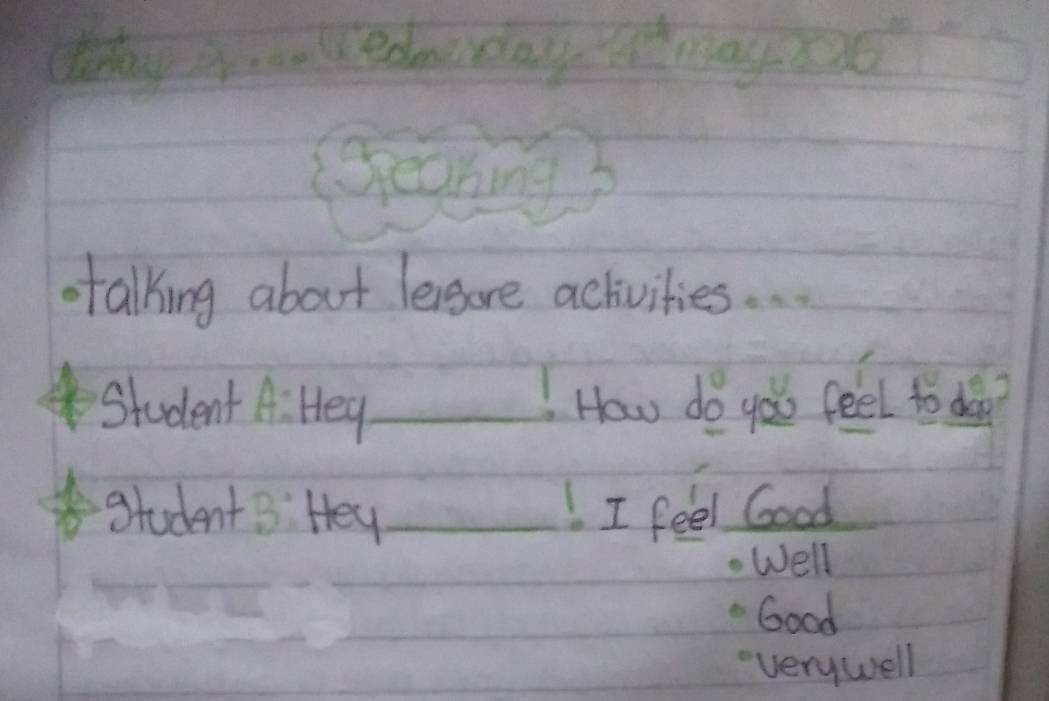 today is... Wednesday may
Speaking
•talking about leisure activities...
Student A: Hey________! How do you feel to day?
Student B: Hey________! I feel Good
• Well
• Good
• very well